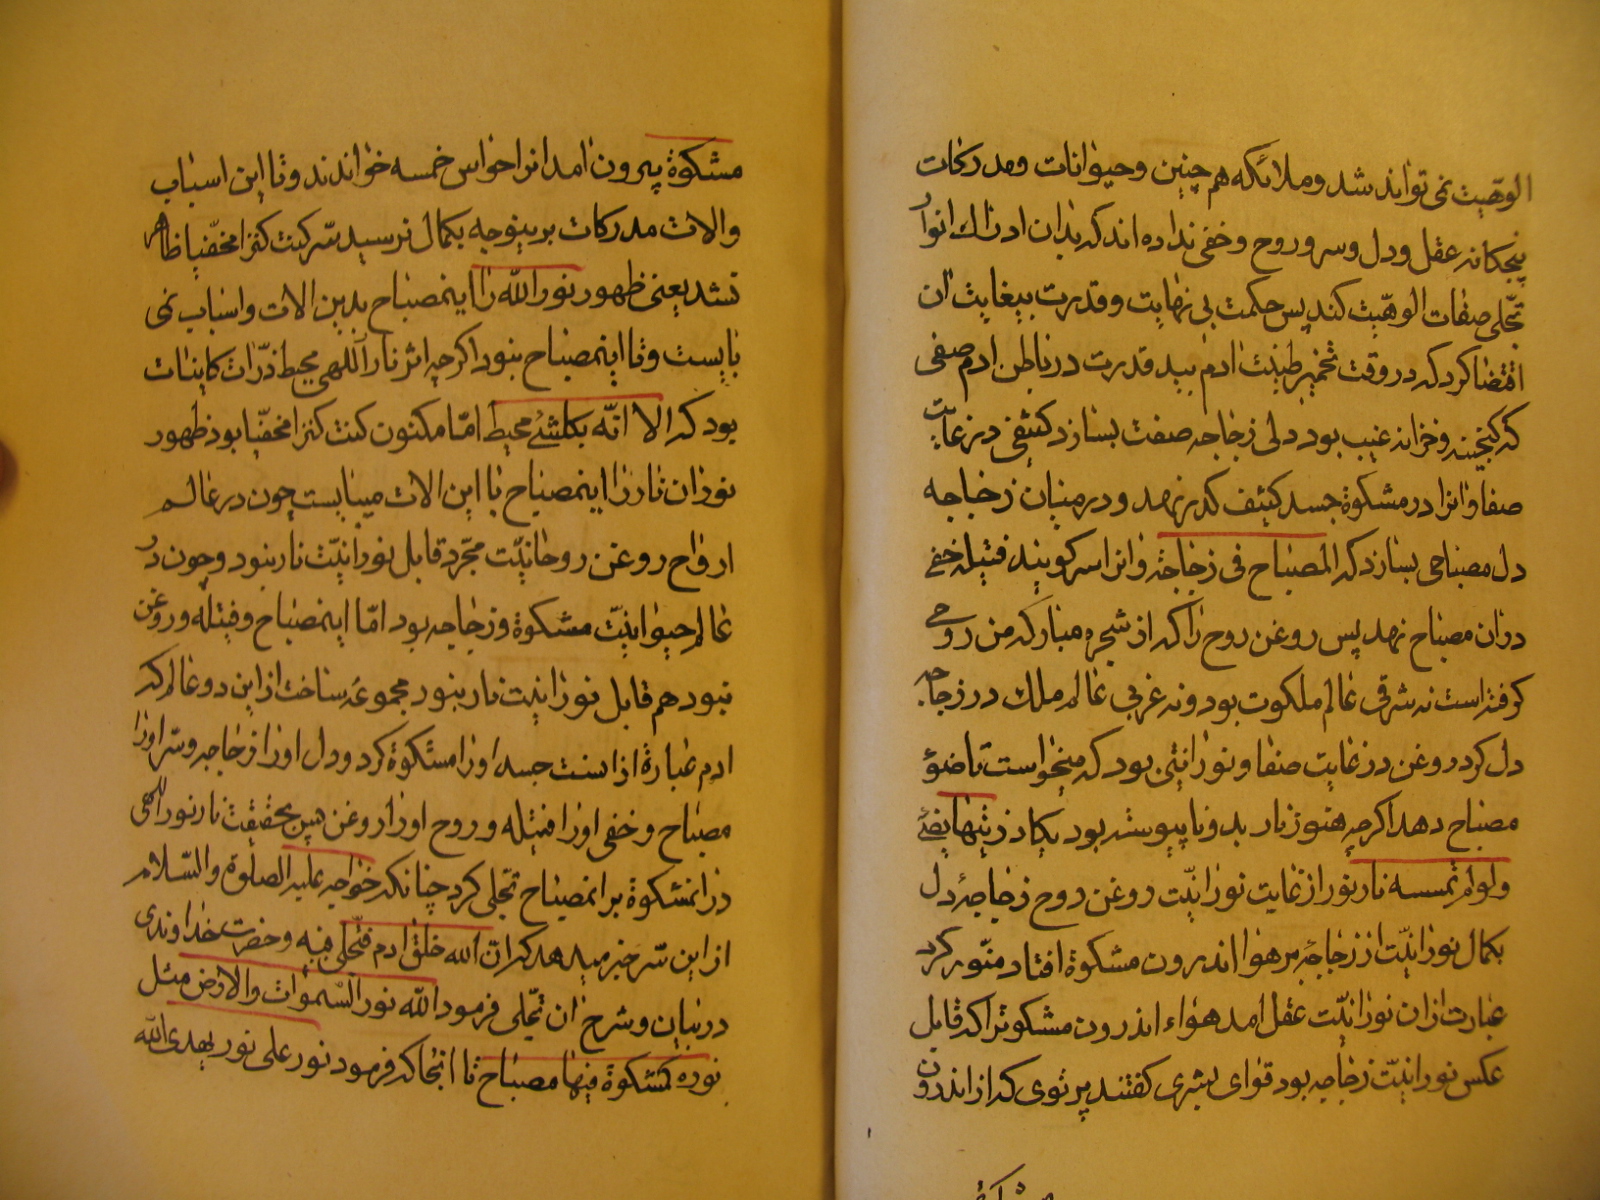 الوهیت نمی تواند شد و ملائکه هم چنین و حیوانات و مدرکات
پنجکانه عقل و دل و سر و روح و خفی نداده اند که بدان ادراک انوار
تجلی صفات الوهیت کنند پس حکمت بی نهایت و قدرت بیغایت ان
اقتضا کرد که در وقت تخمیر طینت ادم بید قدرت در باطن ادم صفی
که کنجینه و خزانه غیب بود دلی زجاجه صفت بسازد کثیفی در غایت
صفا و انرا در مشکوة جسد کثیف کدر نهد و در میان زجاجه
دل مصباحی بسازد که المصباح فی زجاجة و انرا سر کویند فتیله خفی
در ان مصباح نهد پس روغن روح را که از شجره مبارکه من روحی
کرفته است نه شرقی عالم ملکوت بود و نه غربی عالم ملک در زجاجه
دل کرد روغن در غایت صفا و نورانیتی بود که میخواست تا ضوٴ
مصباح دهد اکرچه هنوز نار بدو نا پیوسته بود یکاد زیتها یضیٴ
و لو لم تمسسه نار نور از غایت نورانیّت روغن روح زجاجهٔ دل
بکمال نورانیّت از زجاجهٔ بر هوا اندرون مشکوة افتاد منّور کرد
عبارت از ان نورانیّت عقل امد هواء اندرون مشکوتراکه قابل
عکس نورانیّت زجاجه بود قوای بشری کفتند پرتوی که از اندرون
مشکوة
مشکوة بیرون امد انرا حواس خمسه خواندند و تا این اسباب
والات مدرکات برینوجه بکمال نرسید سّر کنت کنزا مخفّیا ظاهر
نشد یعنی ظهور نور الله را اینمصباح بدین الات و اسباب نمی
بایست و تا اینمصباح نبود اکرچه اثر نار اللهی محیط ذرّات کاینات
بود که الا انّه بکلشئ محیط امّا مکنون کنت کنزا مخفّیا بود ظهور
نور ان نار را اینمصباح با این الات میبایست چون در عالم
ارواح روغن روحانیّت مجّرد قابل نورانیّت نار نبود و چون در
عالم حیوانیّت مشکوة و زجاجه بود امّا اینمصباح و فتیله و روغن
نبود هم قابل نورانیّت نار نبود مجموعهٔ ساخت از این دو عالم که
ادم عبارة از انست جسد اورا مشکوة کرد و دل اورا زجاجه و سّر اورا
مصباح و خفی اورا فتیله و روح اورا روغن پس بحقیقت نار نور اللهی
در انمشکوة بر انمصباح تجلی کرد چنانکه خواجه علیه الصلوة والسّلام
از این سّر خبر میدهد که ان الله خلق ادم فتجلی فیه و حضرت خداوندی
در بیان و شرح ان تجّلی فرمود الله نور السّموات والارض مثل
نوره کمشکوة فیها مصباح تا انجا که فرمود نور علی نور یهدی الله